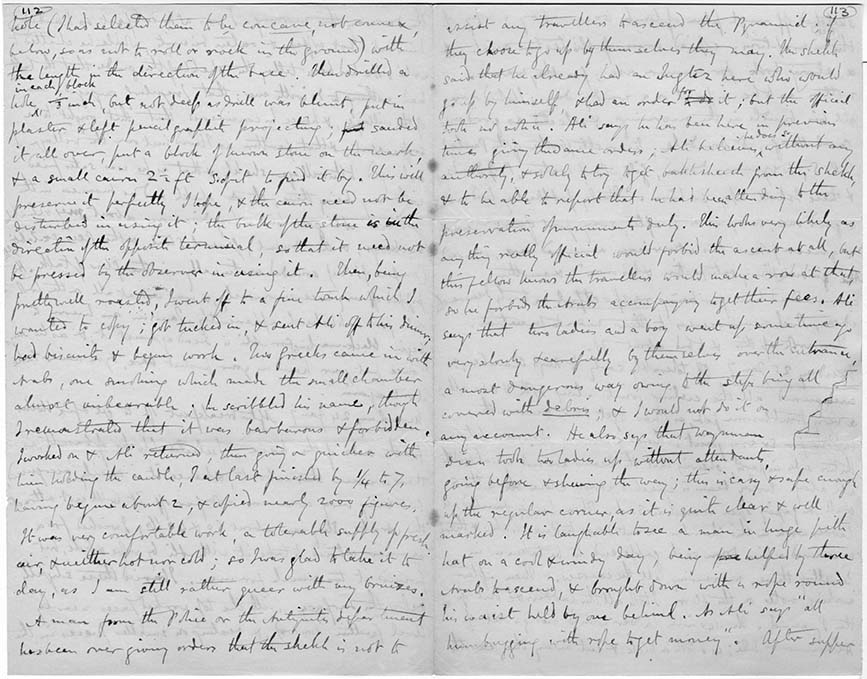 112
hole (I had selected them to be concave, not convex,
below, so as not to roll or rock in the ground) with
the length in the direction of the face. Then drilled a
in each block
hole ½ inch, but not deep as drill was blunt, put in
plaster & left pencil graphit projecting; sanded
it all over, put a block of brown stone on the mark,
& a small cairn 2½ ft S. of it to find it by. This will
preserve it perfectly I hope, & the cairn need not be
disturbed in using it: the bulk of the stone is in the
direction of the opposit terminal, so that it need not
be pressed by the observer in using it. Then, being
pretty well roasted, I went off to a fine tomb which I
wanted to copy; got tucked in, & sent Ali off to his dinner,
had biscuits & began work. Two Greeks came in with
Arabs, one smoking which made the small chamber
almost unbearable; he scribbled his name, though
I remonstrated that it was barbarous & forbidden.
I worked on & Ali returned, then going on quicker with
him holding the candle, I at last finished by ¼ to 7,
having begun about 2, & copied nearly 2000 figures.
It was very comfortable work, a tolerable supply of fresh
air, & neither hot nor cold; so I was glad to take it to
day, as I am still rather queer with my bruises.
A man from the Police or the Antiquities department
has been over giving orders that the sheikh is not to
113
assist any travellers to ascend the Pyramid: if
they choose to go up by themselves they may. The sheikh
said that he already had an Inglez here who would
go up by himself & had an order for it; but the official
took no notice. Ali says he has been here in previous
times giving the same orders; Ali believes he does so without any
authority, & solely to try to get bakhsheesh from the sheikh,
& to be able to report that he had been attending to the
preservation of monuments duly. This looks very likely as
anything really official would forbid the ascent at all, but
this fellow knows the travellers would make a row at that
so he forbids the Arabs accompanying to get their fees. Ali
says that two ladies and a boy went up some time ago
very slowly & carefully by themselves over the entrance,
a most dangerous way owing to the steps being all
covered with debris; & I would not do it on
any account. He also says that Waynman
Dixon took two ladies up without attendants,
going before & shewing the way; this is easy & safe enough
up the regular corner, as it is quite clear & well
marked. It is laughable to see a man in huge pith
hat, on a cool & windy day, being helped by three
Arabs to ascend, & brought down with a rope round
his waist held by one behind. As Ali says "all
humbugging with rope to get money". After supper